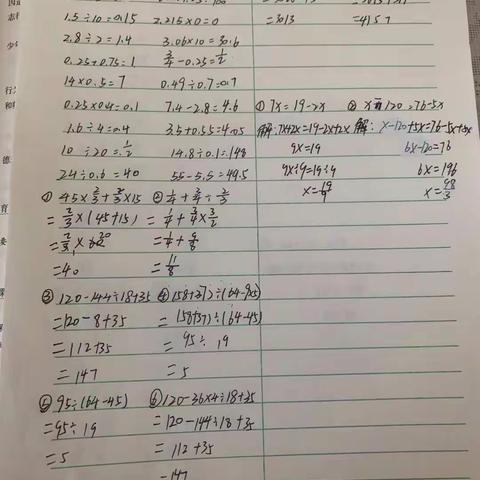 1.5÷10=0.15 2.215×0=0
=3013 =4157
2.8÷2=1.4 3.06×10=30.6
0.25+0.75=1 3/4-0.25=1/2
14×0.5=7 0.49÷0.7=0.7
0.25×0.4=0.1 7.4-2.8=4.6 ① 7x=19-2x
1.6÷4=0.4 3.5+0.55=4.05
解:7x+2x=19-2x+2x 解: x-120+5x=76-5x+5x
10÷20=1/2 14.8÷0.1=148
9x=19 6x-120=76
24÷0.6=40 55-5.5=49.5
9x÷9=19÷9 6x=196
x=19/9 x=98/3
① 45×2/3+2/3×15 ② 1/4+3/4÷2/3
=2/3×(45+15) =1/4+3/4×3/2
=2/3×60 20 =1/4+9/8
=40 =11/8
③ 120-144÷18+35 ④ (58+37)÷(64-9×5)
=120-8+35 =(58+37)÷(64-45)
=112+35 =95÷19
=147 =5
⑤ 95÷(64-45) ⑥ 120-36×4÷18+35
=95÷19 =120-144÷18+35
=5 =112+35
=147